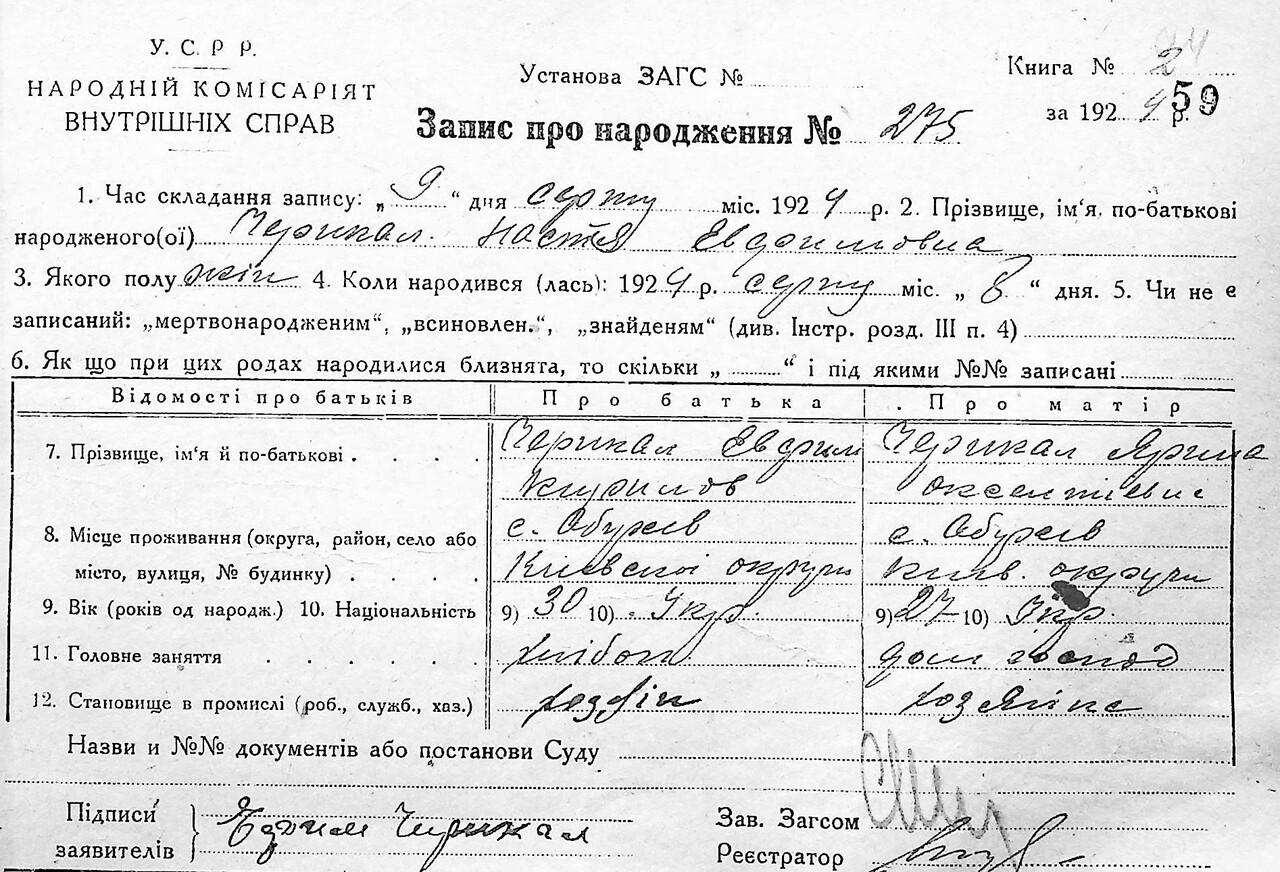 У. С. Р Р.
НАРОДНІЙ КОМІСАРІЯТ
ВНУТРІШНІХ СПРАВ
Установа ЗАГС №
Книга № 2
за 1924 р. 59
Запис про народження № 275
1. Час складання запису: „9“ дня серпу міс. 1924 р. 2. Прізвище, ім‘я, по-батькові
народженого(ої) Черикал Настя Евдоимовна
3. Якого полу жін 4. Коли народився (лась): 1924 р. серпу міс. „8“ дня. 5. Чи не є
записаний: „мертвонародженим“, „всиновлен.“, „знайденям“ (див. Інстр. розд. III п. 4)
6. Як що при цих родах народилися близнята, то скільки „ “ і під якими №№ записані
Відомості про батьків Про батька Про матір
7. Прізвище, ім‘я й по-батькові Черикал Евдоим Черикал Ярина
Кирилов Оксентієвна
8. Місце проживання (округа, район, село або с. Обухів с. Обухів
місто, вулиця, № будинку) Київскої округи Київ. округи
9. Вік (років од народж.) 10. Національність 9) 30 10) Укр. 9) 27 10) Укр.
11. Головне заняття хлібоп дом господ
12. Становище в промислі (роб., служб., хаз.) хозяін хозяйка
Назви и №№ документів або постанови Суду
Підписи
заявителів
Чирикал
Зав. Загсом
Реєстратор